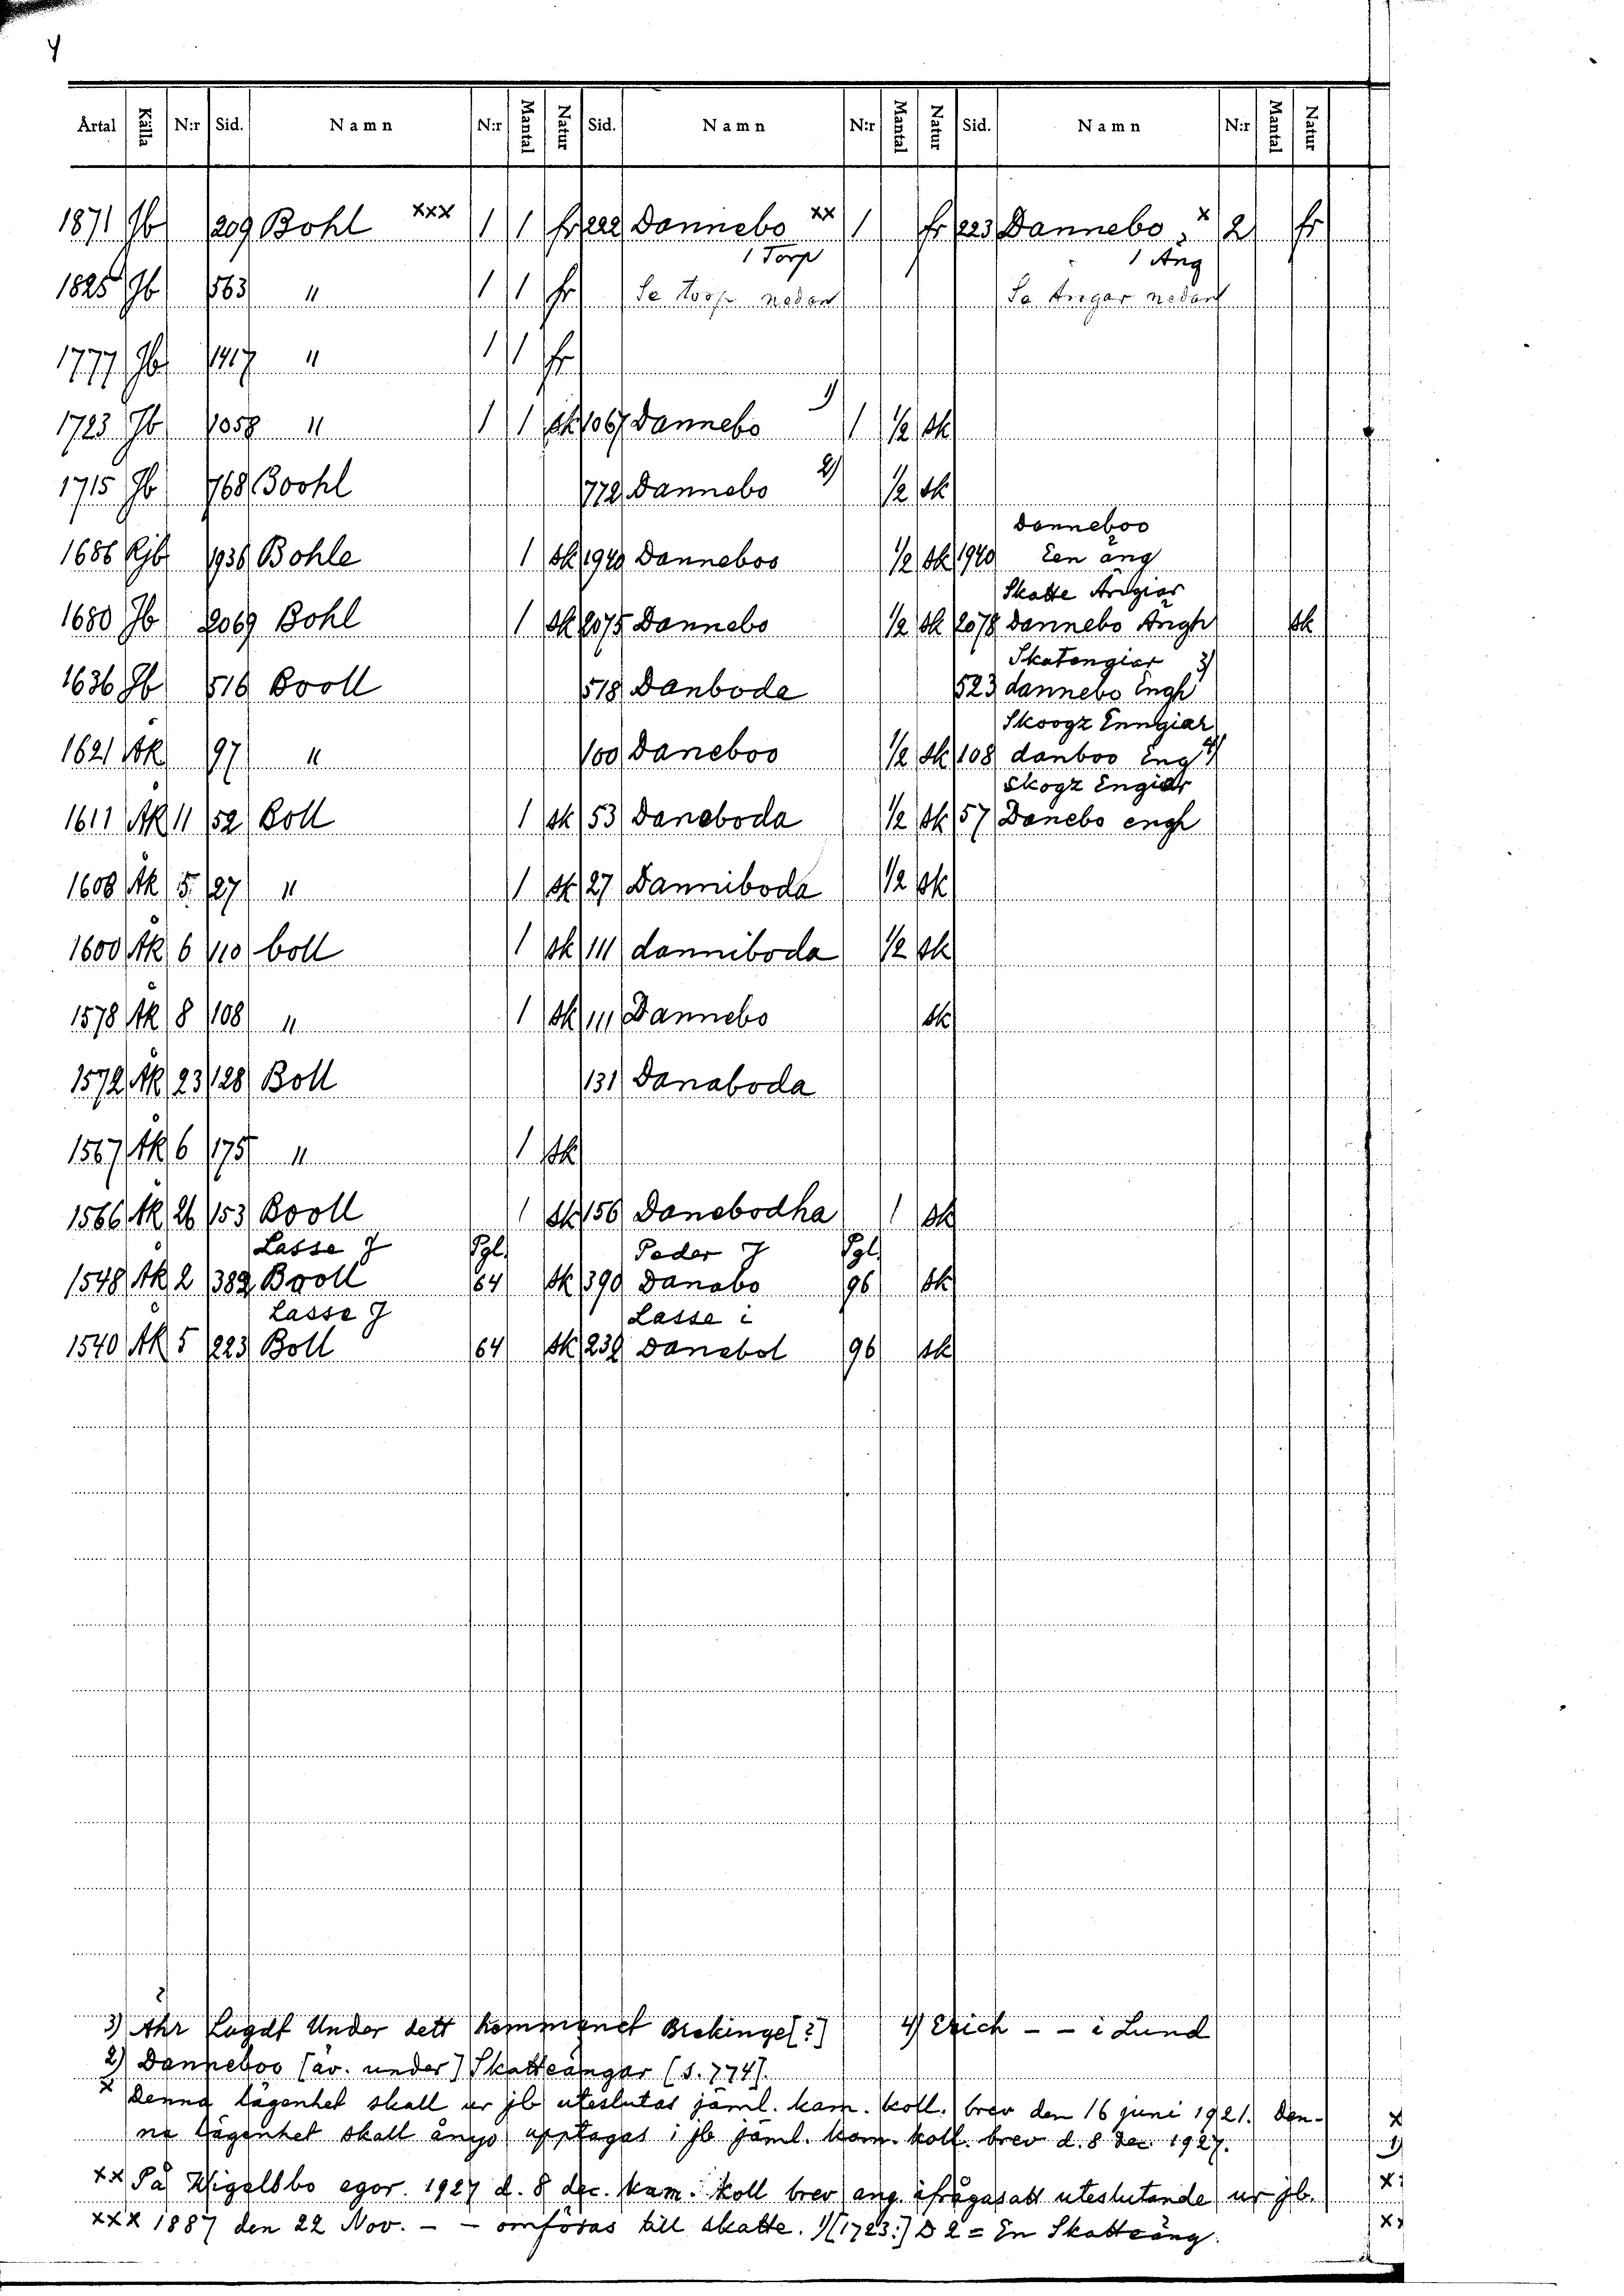 Y
Årtal Källa N:r Sid. Namn N:r Mantal Natur Sid. Namn N:r Mantal Natur Sid. Namn N:r Mantal Natur
1871 Jb 209 Bohl xxx 1 1 fr 222 Dannebo xx 1 fr 223 Dannebo x 2 fr
1 Torp 1 Äng
1825 Jb 563 " 1 1 fr Se torp nedan Se Ängar nedan
1777 Jb 1417 " 1 1 fr
1723 Jb 1058 " 1 1 sk 1067 Dannebo 1) 1 1/2 sk
1715 Jb 768 Boohl 772 Dannebo 2) 1/2 sk
Danneboo
1686 Rjb 1936 Bohle 1 sk 1940 Danneboo 1/2 sk 1940 Een äng
Skatte Ängiar
1680 Jb 2069 Bohl 1 sk 2075 Dannebo 1/2 sk 2078 Dannebo Ängh sk
Skatengiar 3)
1636 Jb 516 Booll 518 Danboda 523 dannebo Engh
Skoogz Enngiar
1621 Åk 97 " 100 Daneboo 1/2 sk 108 danboo Eng 4)
Skogz Engiar
1611 Åk 11 52 Boll 1 sk 53 Daneboda 1/2 sk 57 Danebo engh
1608 Åk 5 27 " 1 sk 27 Danniboda 1/2 sk
1600 Åk 6 110 boll 1 sk 111 danniboda 1/2 sk
1578 Åk 8 108 " 1 sk 111 Dannebo sk
1572 Åk 23 128 Boll 131 Danaboda
1567 Åk 6 175 " 1 sk
1566 Åk 26 153 Booll 1 sk 156 Danebodha 1 sk
Lasse J Pgl. Peder J Pgl.
1548 Åk 2 382 Booll 64 sk 390 Danabo 96 sk
Lasse J Lasse i
1540 Åk 5 223 Boll 64 sk 232 Danebol 96 sk
3) Ähr Lagdt Under dett Brekinge[?] 4) Erich - - i Lund
2) Danneboo [äv. under] Skatteängar [s. 774].
x Denna lägenhet skall ur jb uteslutas jäml. kam. koll. brev den 16 juni 1921. Den-
x
na lägenhet skall ånyo upptagas i jb jäml. kam. koll. brev d. 8 dec. 1927.
xx På Wigelsbo egor. 1927 d. 8 dec. kam. koll brev ang. ifrågasatt uteslutande ur jb.
x
xxx 1887 den 22 Nov. - - omföras till skatte. 1) [1723:] D 2 = En Skatteäng.
x